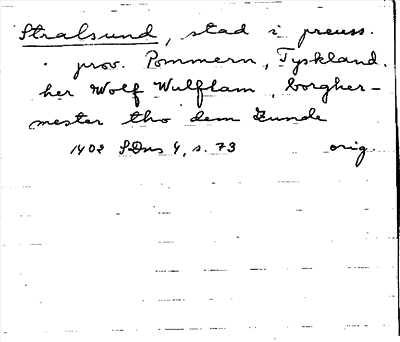 Stralsund, stad i preuss.
prov. Pommern, Tyskland.
her Wolf Wulflam, borgher-
mester tho dem Zunde
1402 SDns 4, s. 73 orig.